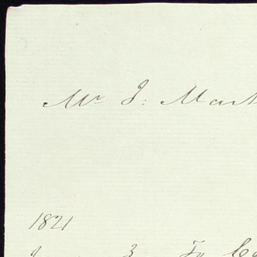 Mr J: Mart
1821
J 3 To Ca